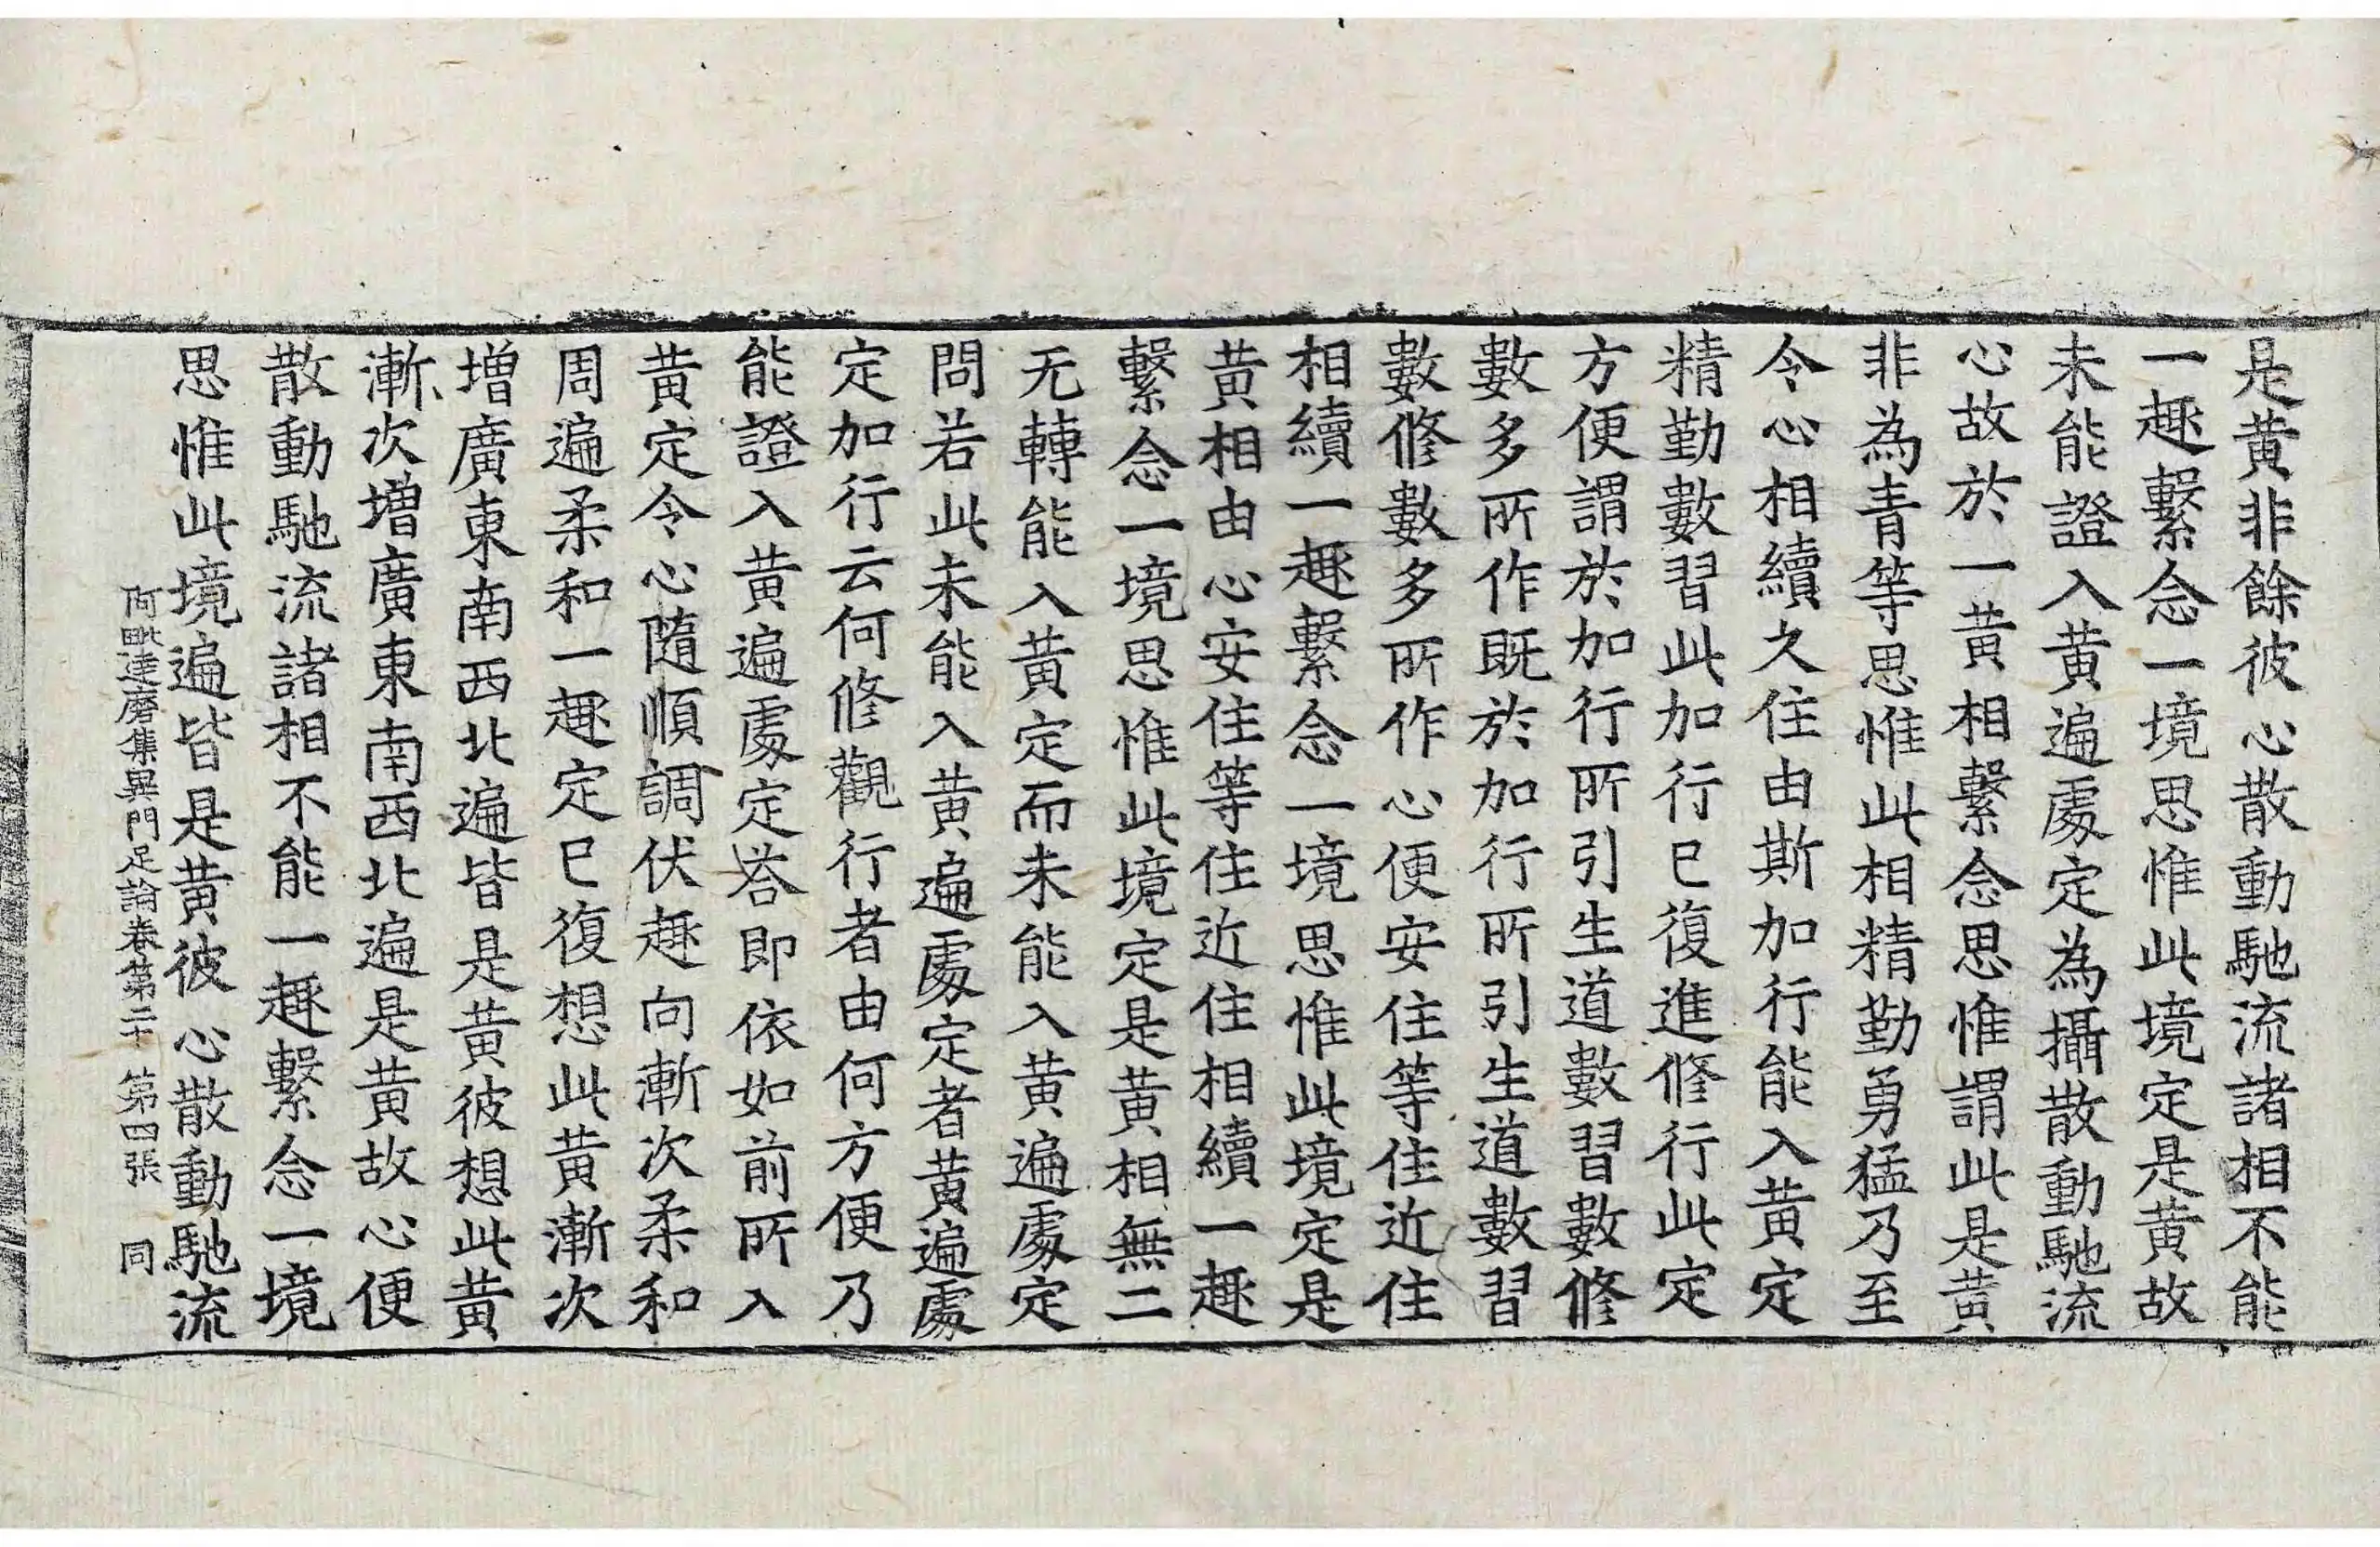 是黄非餘彼心散動馳流諸相不能
一趣繫念一境思惟此境定是黄故
未能證入黄遍處定為攝散動馳流
心故於一黄相繫念思惟謂此是黄
非為青等思惟此相精勤勇猛乃至
令心相續久住由斯加行能入黄定
精勤數習此加行已復進修行此定
方便謂於加行所引生道數習數修
數多所作既於加行所引生道數習
數修數多所作心便安住等住近住
相續一趣繫念一境思惟此境定是
黄相由心安住等住近住相續一趣
繫念一境思惟此境定是黄相無二
无轉能入黄定而未能入黄遍處定
問若此未能入黄遍處定者黄遍處
定加行云何修觀行者由何方便乃
能證入黄遍處定荅即依如前所入
黄定令心隨順調伏趣向漸次柔和
周遍柔和一趣定已復想此黄漸次
增廣東南西北遍皆是黄彼想此黄
漸次增廣東南西北遍是黄故心便
散動馳流諸相不能一趣繫念一境
思惟此境遍皆是黄彼心散動馳流
阿毗達磨集異門足論卷第二十 第四張 同